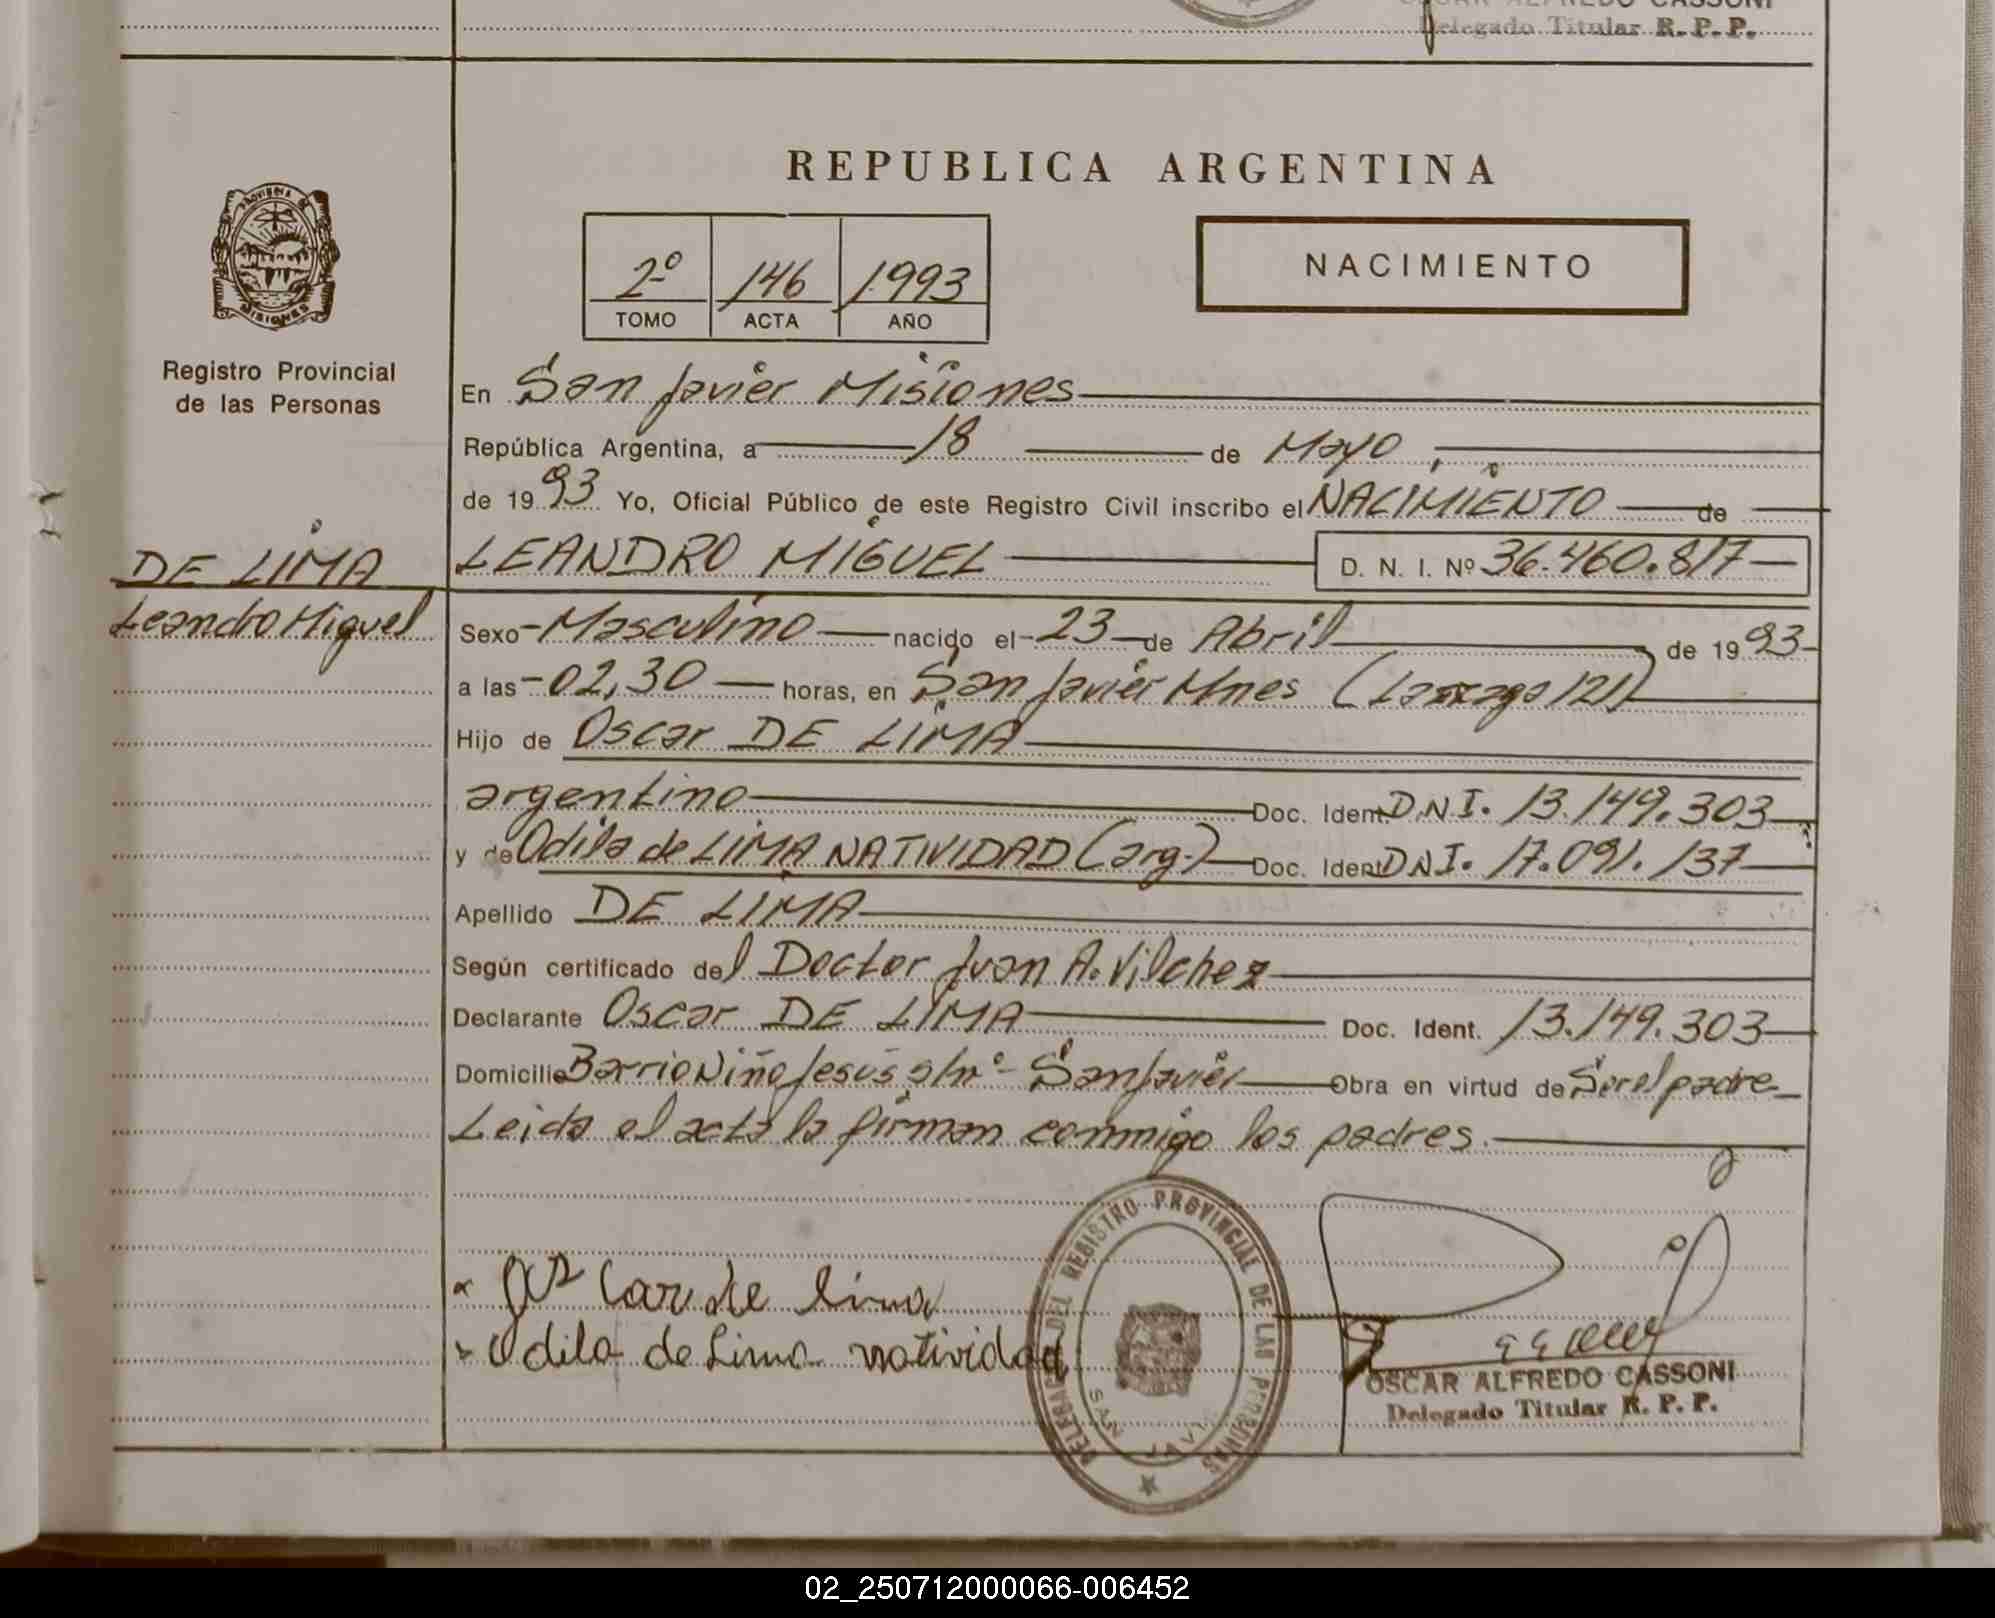 OSCAR ALFREDO CASSONI
Delegado Titular R. P. P.
REPUBLICA ARGENTINA
2º 146 1993
TOMO ACTA AÑO
NACIMIENTO
PROVINCIA DE
MISIONES
Registro Provincial
de las Personas
En San Javier Misiones
República Argentina, a 18 de Mayo,
de 1993 Yo, Oficial Público de este Registro Civil inscribo el NACIMIENTO de
DE LIMA
Leandro Miguel
LEANDRO MIGUEL D. N. I. Nº 36.460.817
Sexo Masculino nacido el 23 de Abril de 1993
a las 02,30 horas, en San Javier Mnes (121)
Hijo de Oscar DE LIMA
argentino Doc. Ident. D.N.I. 13.149.303
y de Odila de LIMA NATIVIDAD (arg.) Doc. Ident. D.N.I. 17.091.137
Apellido DE LIMA
Según certificado del Doctor Juan A. Vilchez
Declarante Oscar DE LIMA Doc. Ident. 13.149.303
Domicilio Barrio Niño Jesús s/nº - San Javier Obra en virtud de Ser el padre
Leida el acta la firman conmigo los padres.
car de lima
Odila de Lima natividad
DELEGACION DEL REGISTRO PROVINCIAL DE LAS PERSONAS
SAN JAVI
OSCAR ALFREDO CASSONI
Delegado Titular R. P. P.
02_250712000066-006452